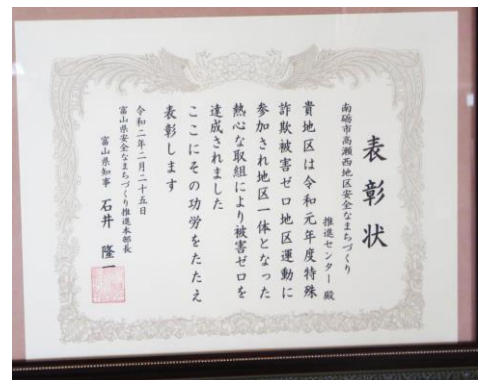 表彰状
南砺市高瀬西地区安全なまちづくり
推進センター 殿
貴地区は令和元年度特殊
詐欺被害ゼロ地区運動に
参加され地区一体となった
熱心な取組により被害ゼロを
達成されました
ここにその功労をたたえ
表彰します
令和二年二月二十五日
富山県安全なまちづくり推進本部長
富山県知事 石井 隆一